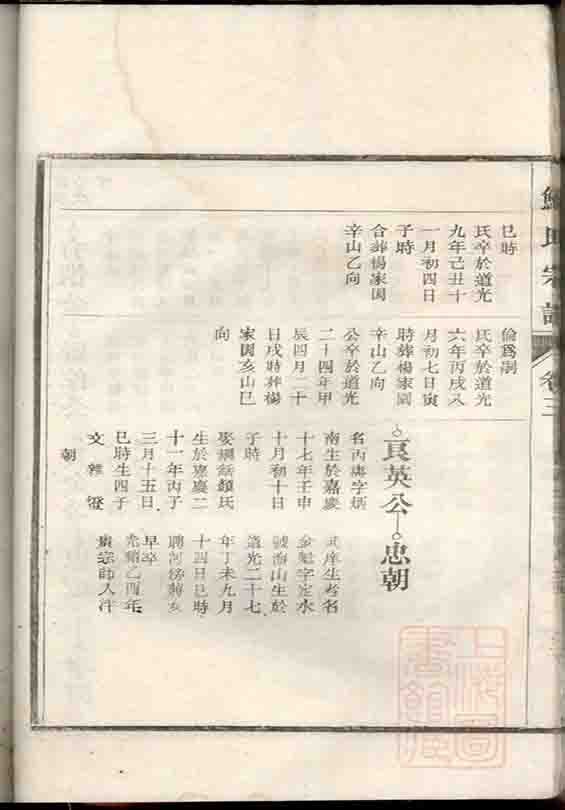 氏宗譜
卷三
巳時
氏卒於道光
九年己丑十
一月初四日
子時
合葬楊家園
辛山乙向
倫爲嗣
氏卒於道光
六年丙戌八
月初七日寅
時葬楊家園
辛山乙向
公卒於道光
二十四年甲
辰四月二十
日戌時葬楊
家園亥山巳
向
良英公
名丙 字炳
南生於嘉慶
十七年壬申
十月初十日
子時
娶 顏氏
生於嘉慶二
十一年丙子
三月十五日
巳時生四子
文 雜 燈
朝
忠朝
庠生考名
金魁字定水
號海山生於
道光二十七
年丁未九月
十四日巳時
聘河 蔣氏
早卒
光緒乙酉年
宗師入泮
上海圖書館藏